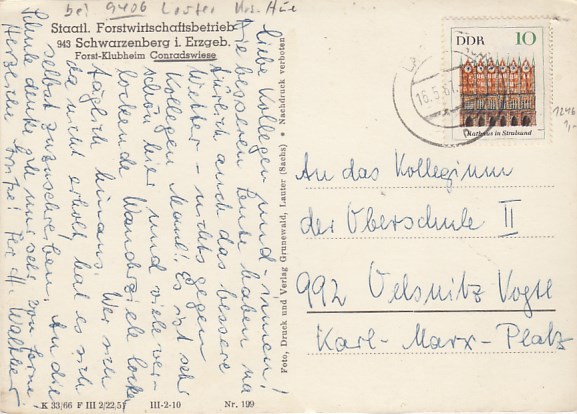 bei 9406 Lauter Krs. Aue
Staatl. Forstwirtschaftsbetrieb
943 Schwarzenberg i. Erzgeb.
Forst-Klubheim Conradswiese
Liebe Kollegen und -innen!
Die besseren Leute haben na
türlich auch das bessere
Wetter - nichts gegen
Kollegen Maul! Es ist sehr
schön hier und viele ver-
lockende Wanderziele locken
täglich hinaus. Wer sich
da nicht erholt, hat es sich
selbst zuzuschreiben. An die
Schule denkt gell nur sehr von ferne.
Herzliche Grüße! Walther
Foto, Druck und Verlag Grunewald, Lauter (Sachs) • Nachdruck verboten
K 33/66 F III 2/22,51 III-2-10 Nr. 199
DDR 10
Rathaus in Stralsund
16.5.67
1246
1,-
An das Kollegium
der Oberschule II
992 Oelsnitz Vogtl
Karl-Marx-Platz